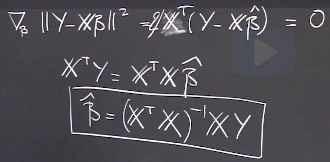 ∇_β ‖Y-𝕏β‖² = 2𝕏ᵀ(Y-𝕏β̂) = 0
𝕏ᵀY = 𝕏ᵀ𝕏β̂
β̂ = (𝕏ᵀ𝕏)⁻¹𝕏Y